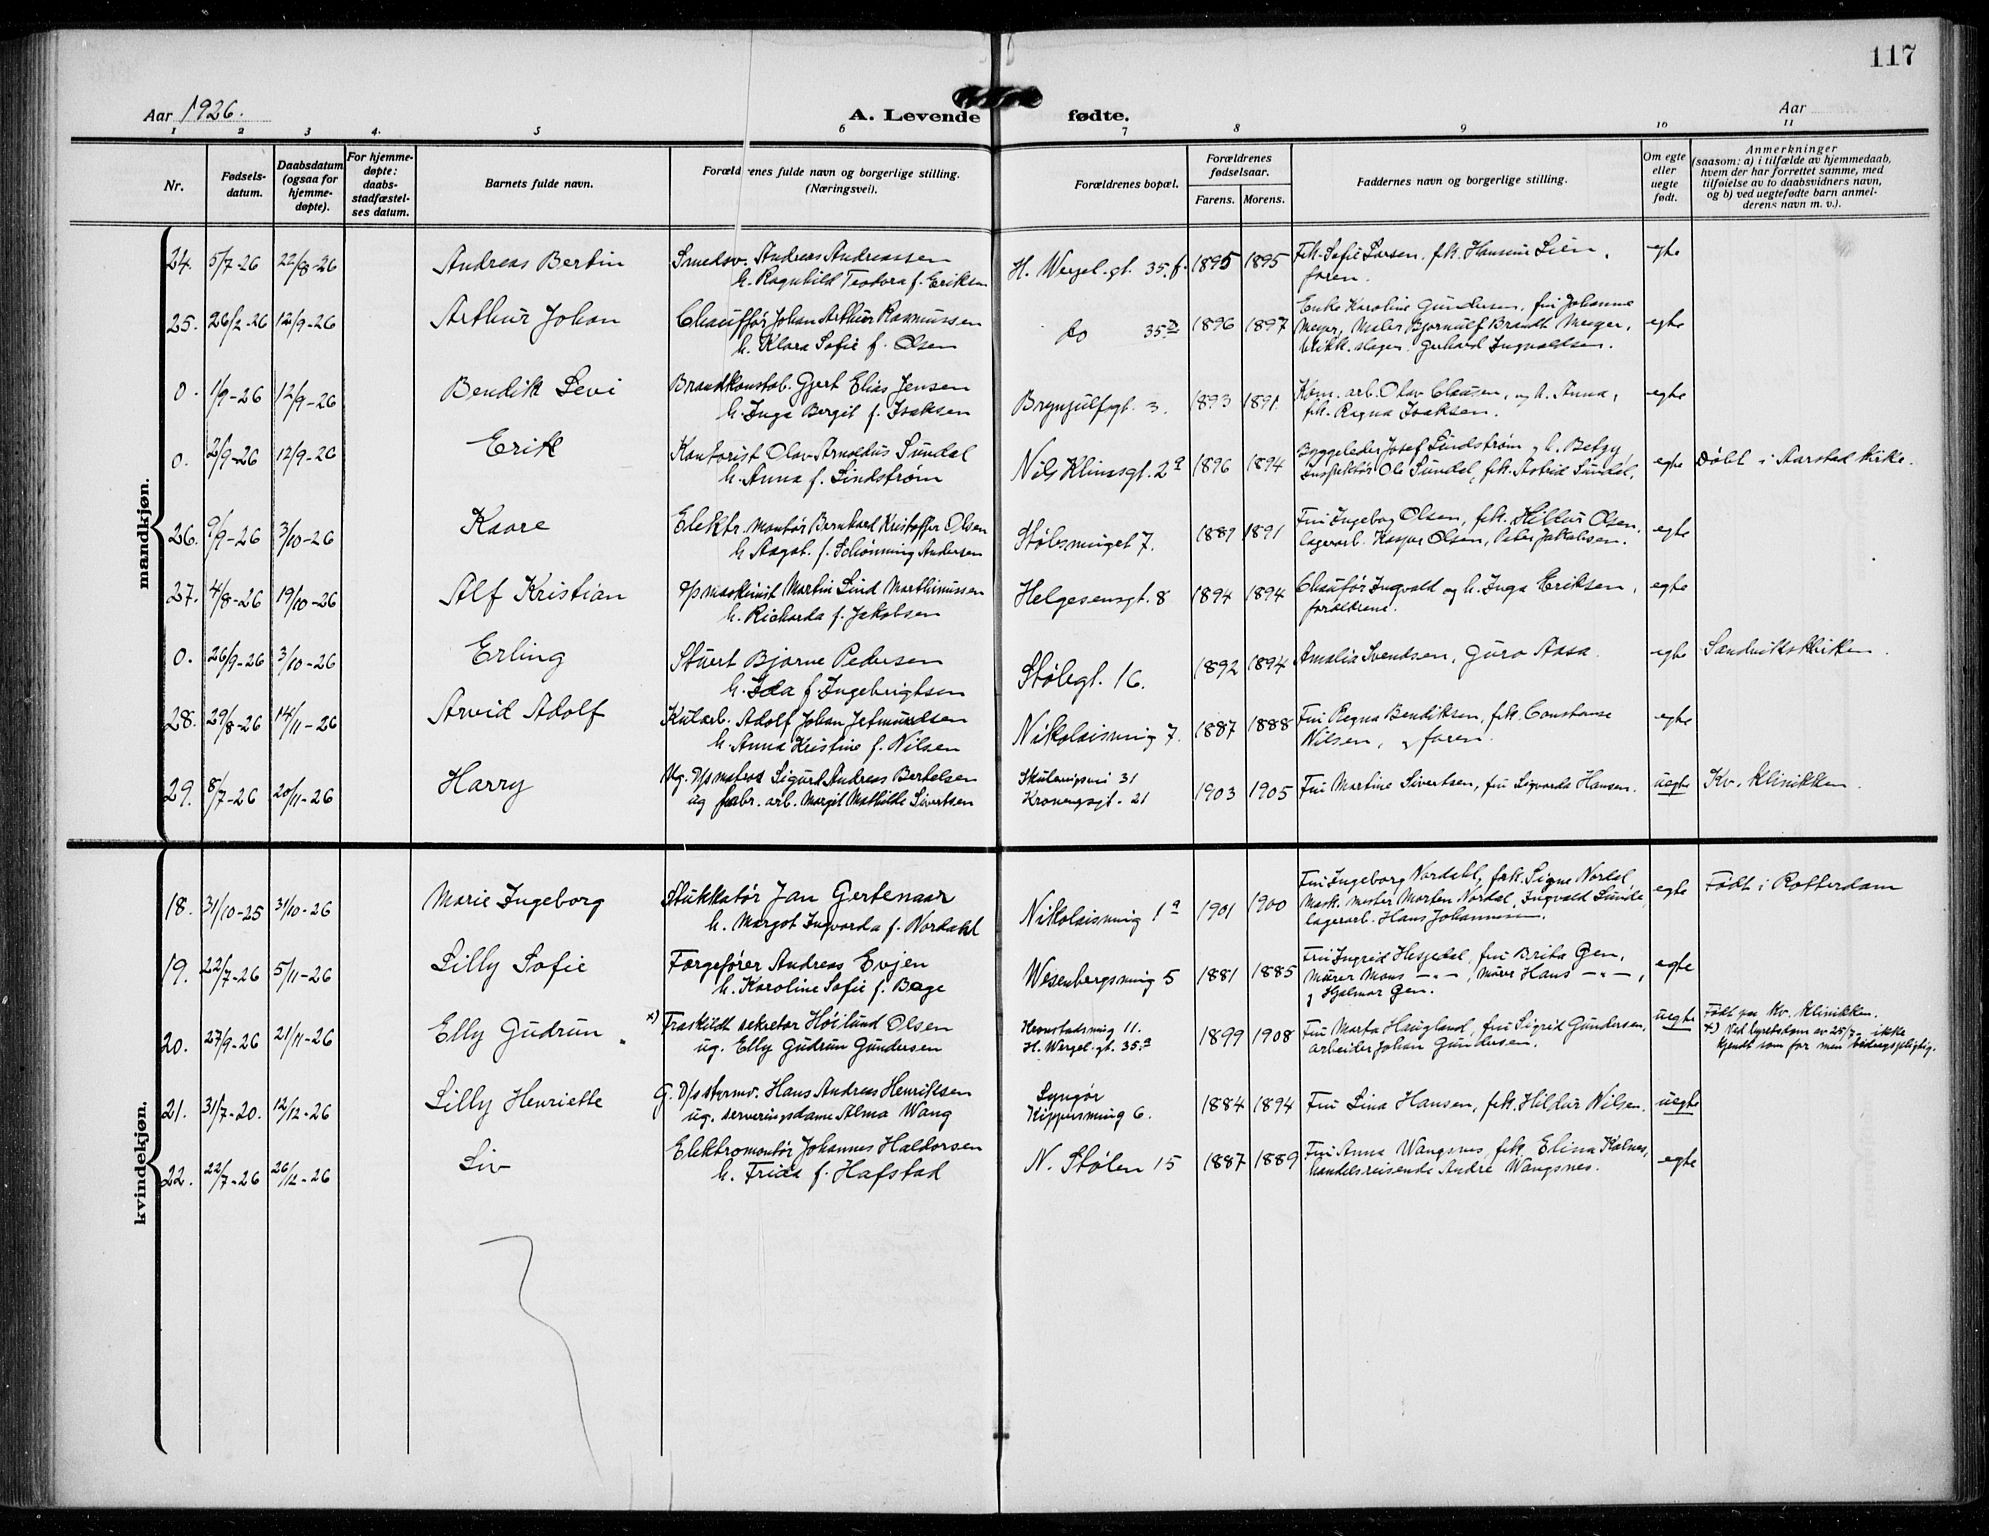 117
Aar 1926.
A. Levende fødte.
Aar
1 2 3 4. 5 6 7 8 9 10 11
Nr.
Fødsels-datum.
Daabsdatum (ogsaa for hjemme-døpte).
For hjemme-døpte: daabs-stadfæstel-ses datum.
Barnets fulde navn.
Forældrenes fulde navn og borgerlige stilling. (Næringsvei).
Forældrenes bopæl.
Forældrenes fødselsaar.
Farens. Morens.
Faddernes navn og borgerlige stilling.
Om egte eller uegte født.
Anmerkninger (saasom: a) i tilfælde av hjemmedaab, hvem der har forrettet samme, med tilføielse av to daabsvidners navn, og b) ved uegtefødte barn anmel-derens navn m. v.).
mandkjøn.
24. 5/7-26 22/8-26 Andreas Bertin Smedsv. Andreas Andreassen H. Wergel. gt. 35.f. 1895 1895 Frk. Sofie Larsen, frk. Hansine Lien, egte
h. Ragnhild Teodora f. Eriksen faren.
25. 26/2-26 12/9-26 Arthur Johan Chauffør Johan Arthur Rasmussen do 35a 1896 1897 Enke Karoline Gundersen, fru Johanne egte
h. Klara Sofie f. Olsen Meyer, Maler Bjørnulf Brandt Meyer,
blikk. slager. Gerhard Ingvaldsen.
0. 1/9-26 12/9-26 Bendik Levi Brandkonstab. Gjert Elias Jensen Brynjulfsgt. 3. 1893 1891. Kom. arb. Olav Clausen, og h. Anna, egte
h. Inga Bergit f. Isaksen frk. Ragna Isaksen.
0. 2/9-26 12/9-26 Erik Kontorist Olav Arnoldus Sundal Nils Klimsgt. 2a 1896 1894 Byggeleder Josef Lindstrøm og h. Betzy, egte Døbt i Aarstad kirke.
h. Anna f. Lindstrøm Inspektør Ole Sundal, frk. Astrid Sundal.
26. 9/9-26 3/10-26 Kaare Elektr. montør Bernhard Kristoffer Olsen Stølsmuget 7. 1891 Fru Ingebog Olsen, frk. Hildur Olsen, egte
h. Aagot. f. Schønning Andersen lagerarb. Kaspar Olsen, Peter Jakobsen.
27. 4/8-26 19/10-26 Alf Kristian D/s maskinist Martin Lind Marthinussen Helgesensgt. 8 1894 1894 Chaufør Ingvald og h. Inga Eriksen, egte
h. Richarda f. Jakobsen forældrene.
0. 26/9-26 3/10-26 Erling Stuert Bjarne Pedersen Stølegt. 16. 1892 1894 Amalia Svendsen, Guro Aasa. egte Sandvikskirken.
h. Ida f. Ingebrigtsen
28. 29/8-26 14/11-26 Arvid Adolf Kularb. Adolf Johan Jetmundsen Nikolaismug 7. 1887 1888 Fru Ragna Bendiksen, frk. Constanse egte
h. Anna Kristine f. Nilsen Nilsen, og faren.
29. 8/7-26 20/11-26 Harry Ug. D/s matros Sigurd Andreas Bertelsen Skuteviksvei 31 1903 1905 Fru Martine Sivertsen, fru Sigvarda Hansen. uegte Kv. klinikken.
ug fabr. arb. Margit Mathilde Sivertsen 21
kvindekjøn.
18. 31/10-25 31/10-26 Marie Ingeborg Stukkatør Jan Gertenaar Nikolaismug 1a 1901 1900 Fru Ingeborg Nordahl, frk. Signe Nordal, egte Født i Rotterdam
h. Margot Ingvarda f. Nordahl Mask. mester Morten Nordal, Ingvald Sunde,
lagerarb. Hans Johannesen.
19. 22/7-26 5/11-26 Lilly Sofie Færgefører Andreas Evjen Wesenbergsmug 5 1881 1885 Fru Ingrid Hesjedal, fru Brita Gen, egte
h. Karoline Sofie f. Bøge murer Mons —"—, murer Hans —"—,
og Hjalmar Gen.
20. 27/9-26 21/11-26 Elly Gudrun x) Fraskildt sekretær Høilund Olsen Hennstadsmug 11. 1899 1908 Fru Marta Haugland, fru Sigrid Gundersen, uegte Født paa kv. klinikken.
ug. Elly Gudrun Gundersen H. Wergel. gt. 35a arbeider Johan Gundersen. x) Ved byretsdom av 25/7 - ikke
kjendt som far men bidragspligtig.
21. 31/7-20. 12/12-26 Lilly Henriette G. D/s styrmd. Hans Andreas Henriksen Lyngør 1884 1894 Fru Lina Hansen, frk. Hildur Nilsen. uegte
ug. serveringsdame Alma Wang Kippersmug 6.
22. 22/7-26 26/12-26 Liv Elektromontør Johannes Haldorsen N. Stølen 15 1887 1889 Fru Anna Wangsnes, frk. Elina Kalnes, egte
h. Frida f. Hafstad handelsreisende André Wangsnes.